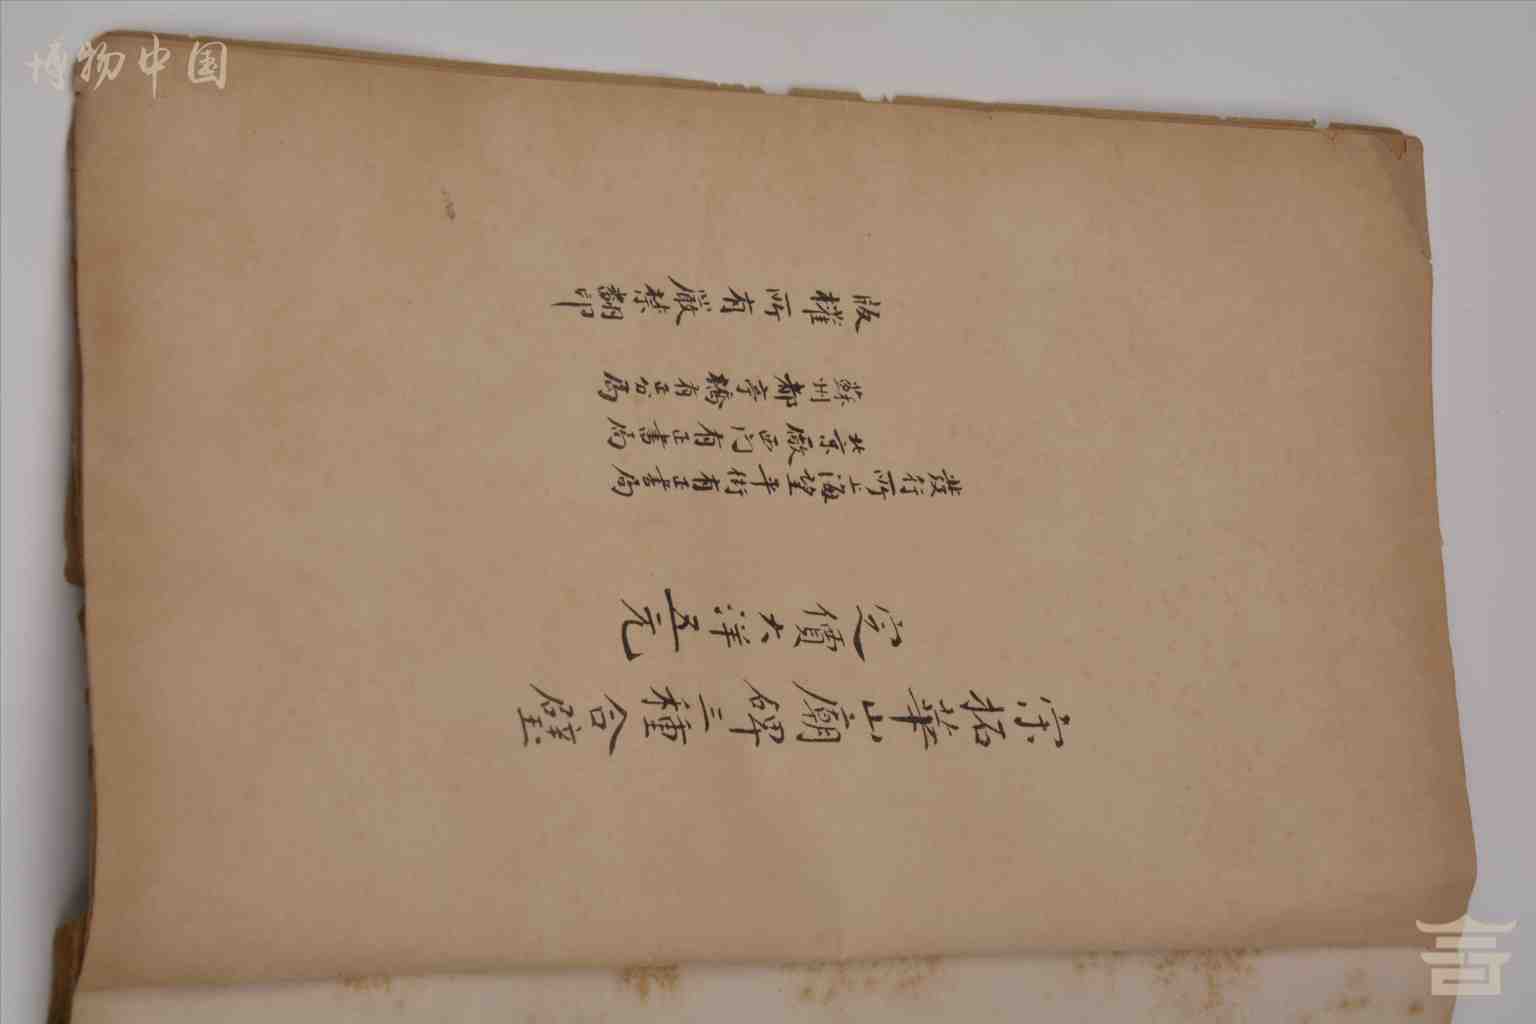 博物中国
宋拓華山廟碑三種合璧
定價大洋五元
發行所上海望平街有正書局
北京廠西门有正書局
蘇州都亭橋有正書局
版權所有嚴禁翻印